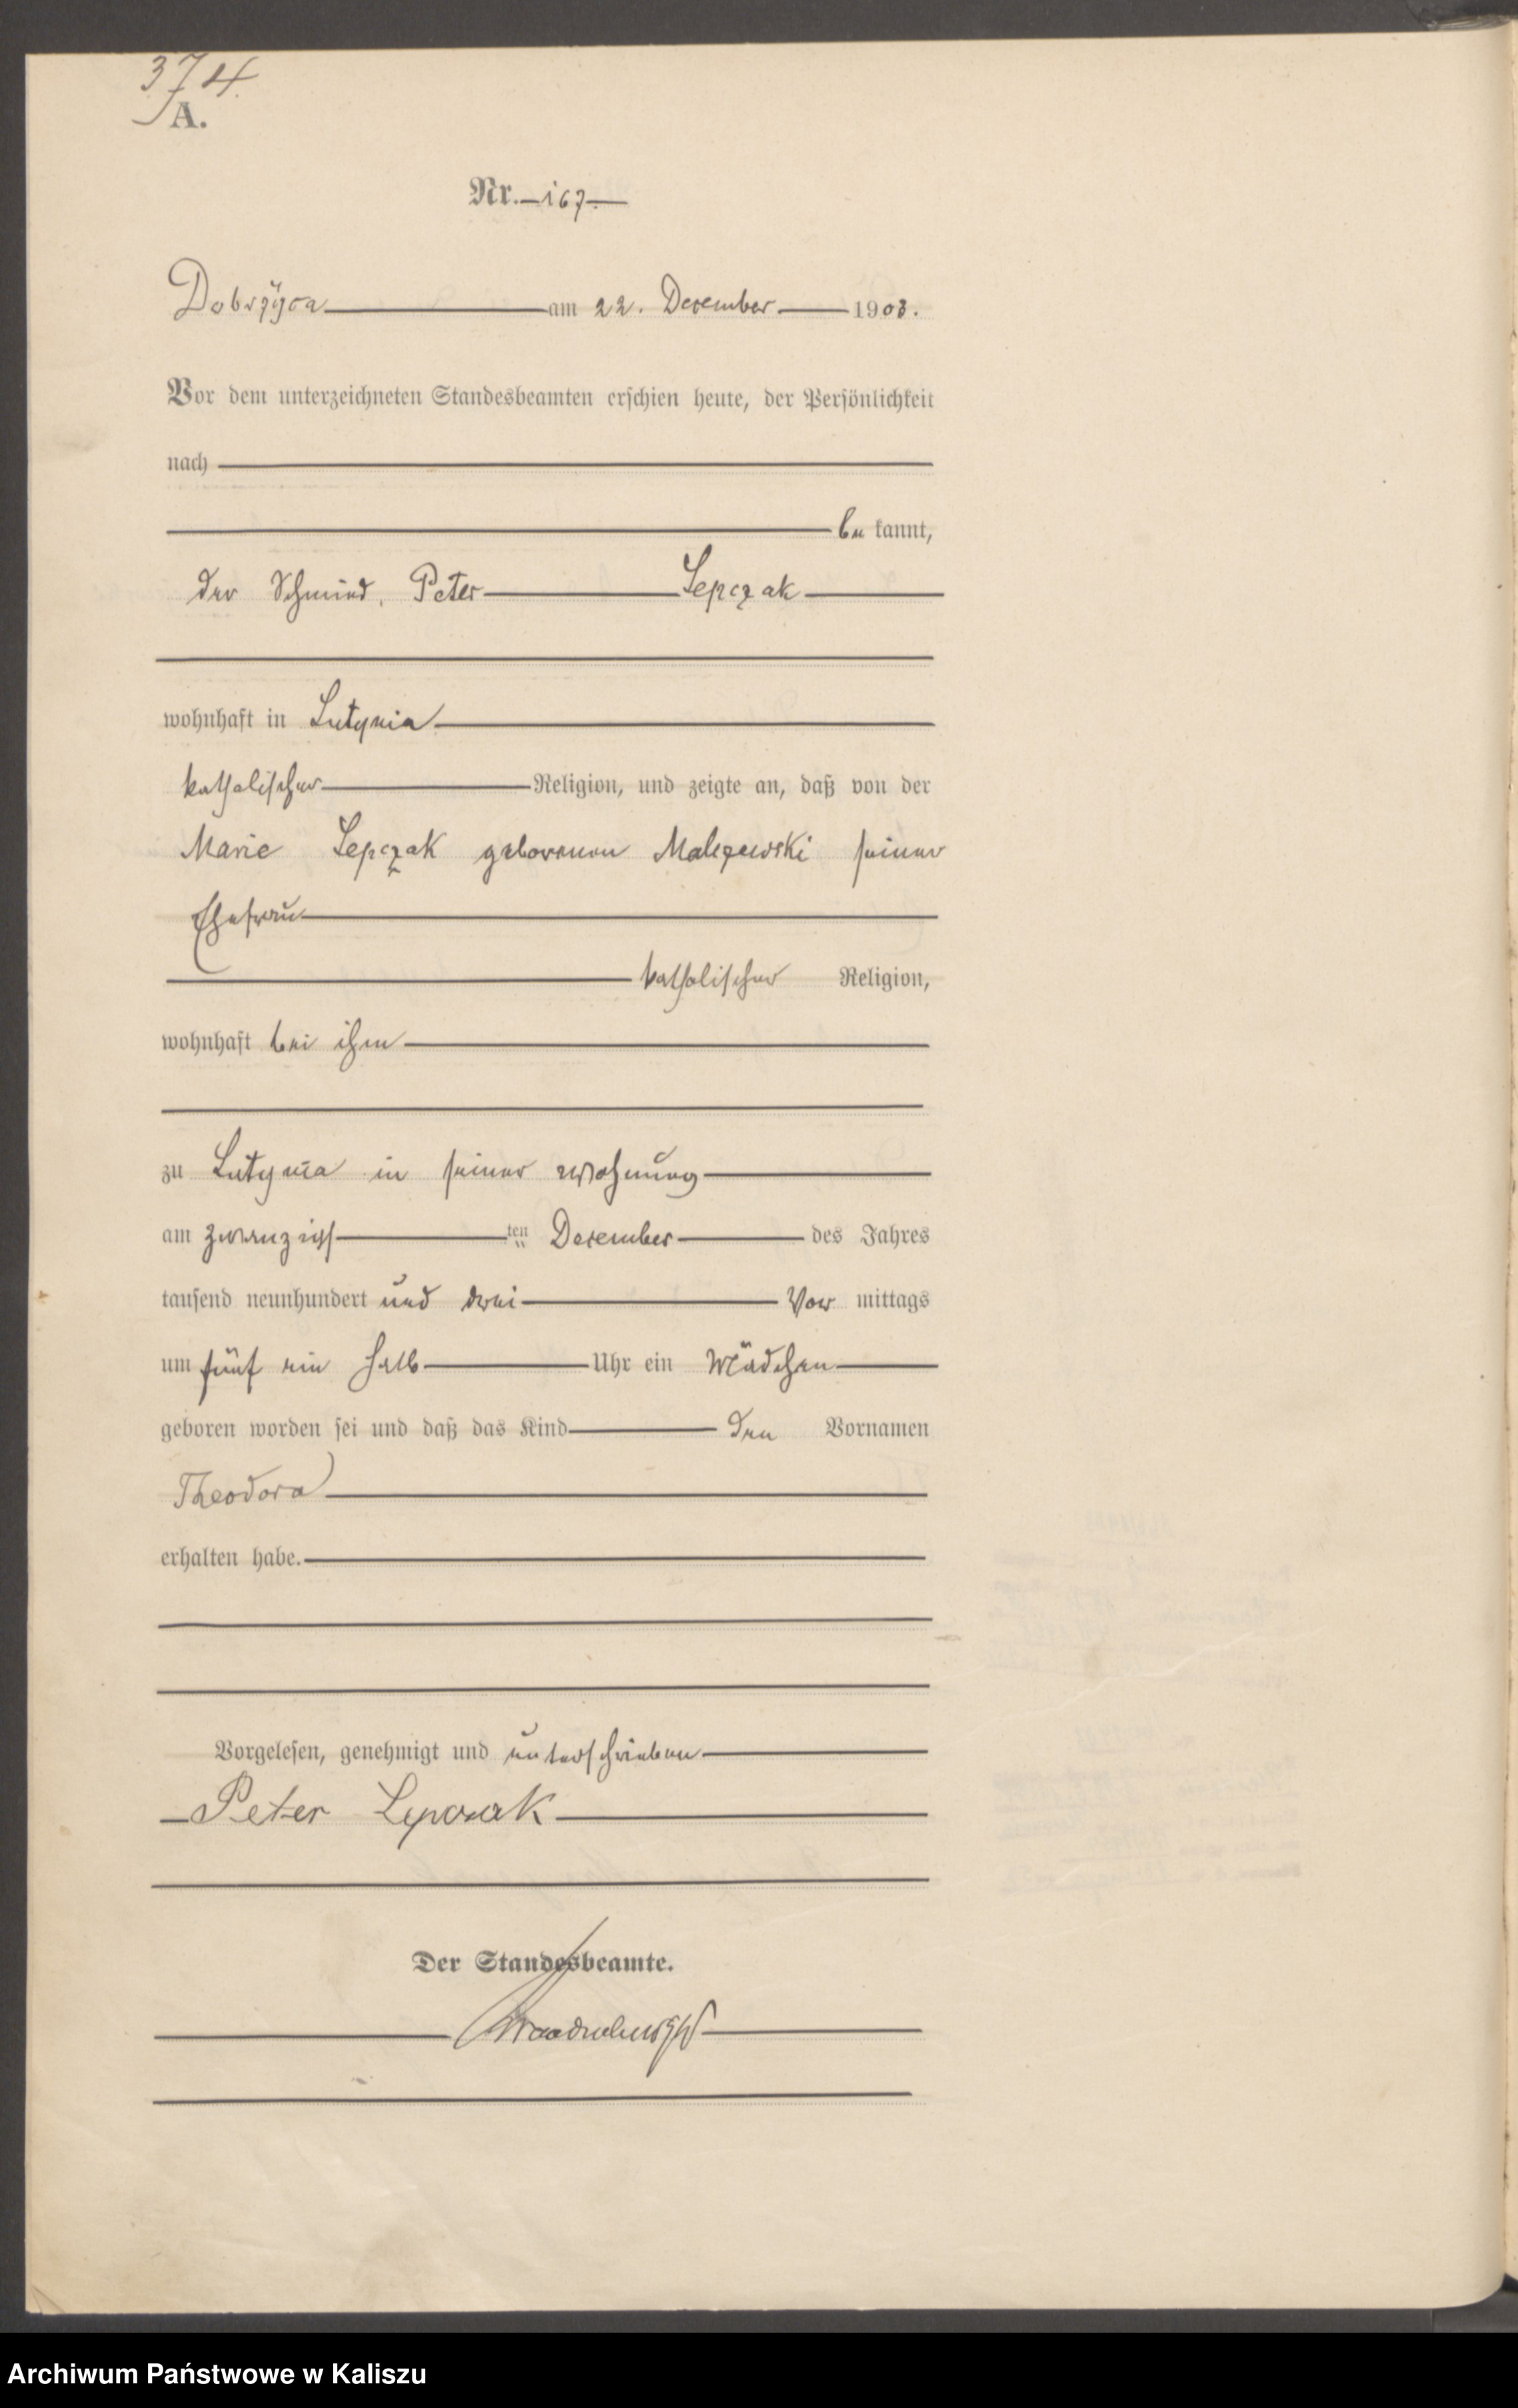 374
A.
Nr. 167.
Dobrzyca am 22. December 1903.
Vor dem unterzeichneten Standesbeamten erschien heute, der Persönlichkeit
nach
be kannt,
der Schmied, Peter Lepczak
wohnhaft in Lutynia
katholischer Religion, und zeigte an, daß von der
Marie Lepczak geborenen Malezewski seiner
Ehefrau
katholischer Religion,
wohnhaft bei ihm
zu Lutynia in seiner Wohnung
am zwanzigs ten December des Jahres
tausend neunhundert und drei Vor mittags
um fünf ein halb Uhr ein Mädchen
geboren worden sei und daß das Kind den Vornamen
Theodora
erhalten habe.
Vorgelesen, genehmigt und unterschrieben
Peter Lepczak
Der Standesbeamte.
Archiwum Państwowe w Kaliszu